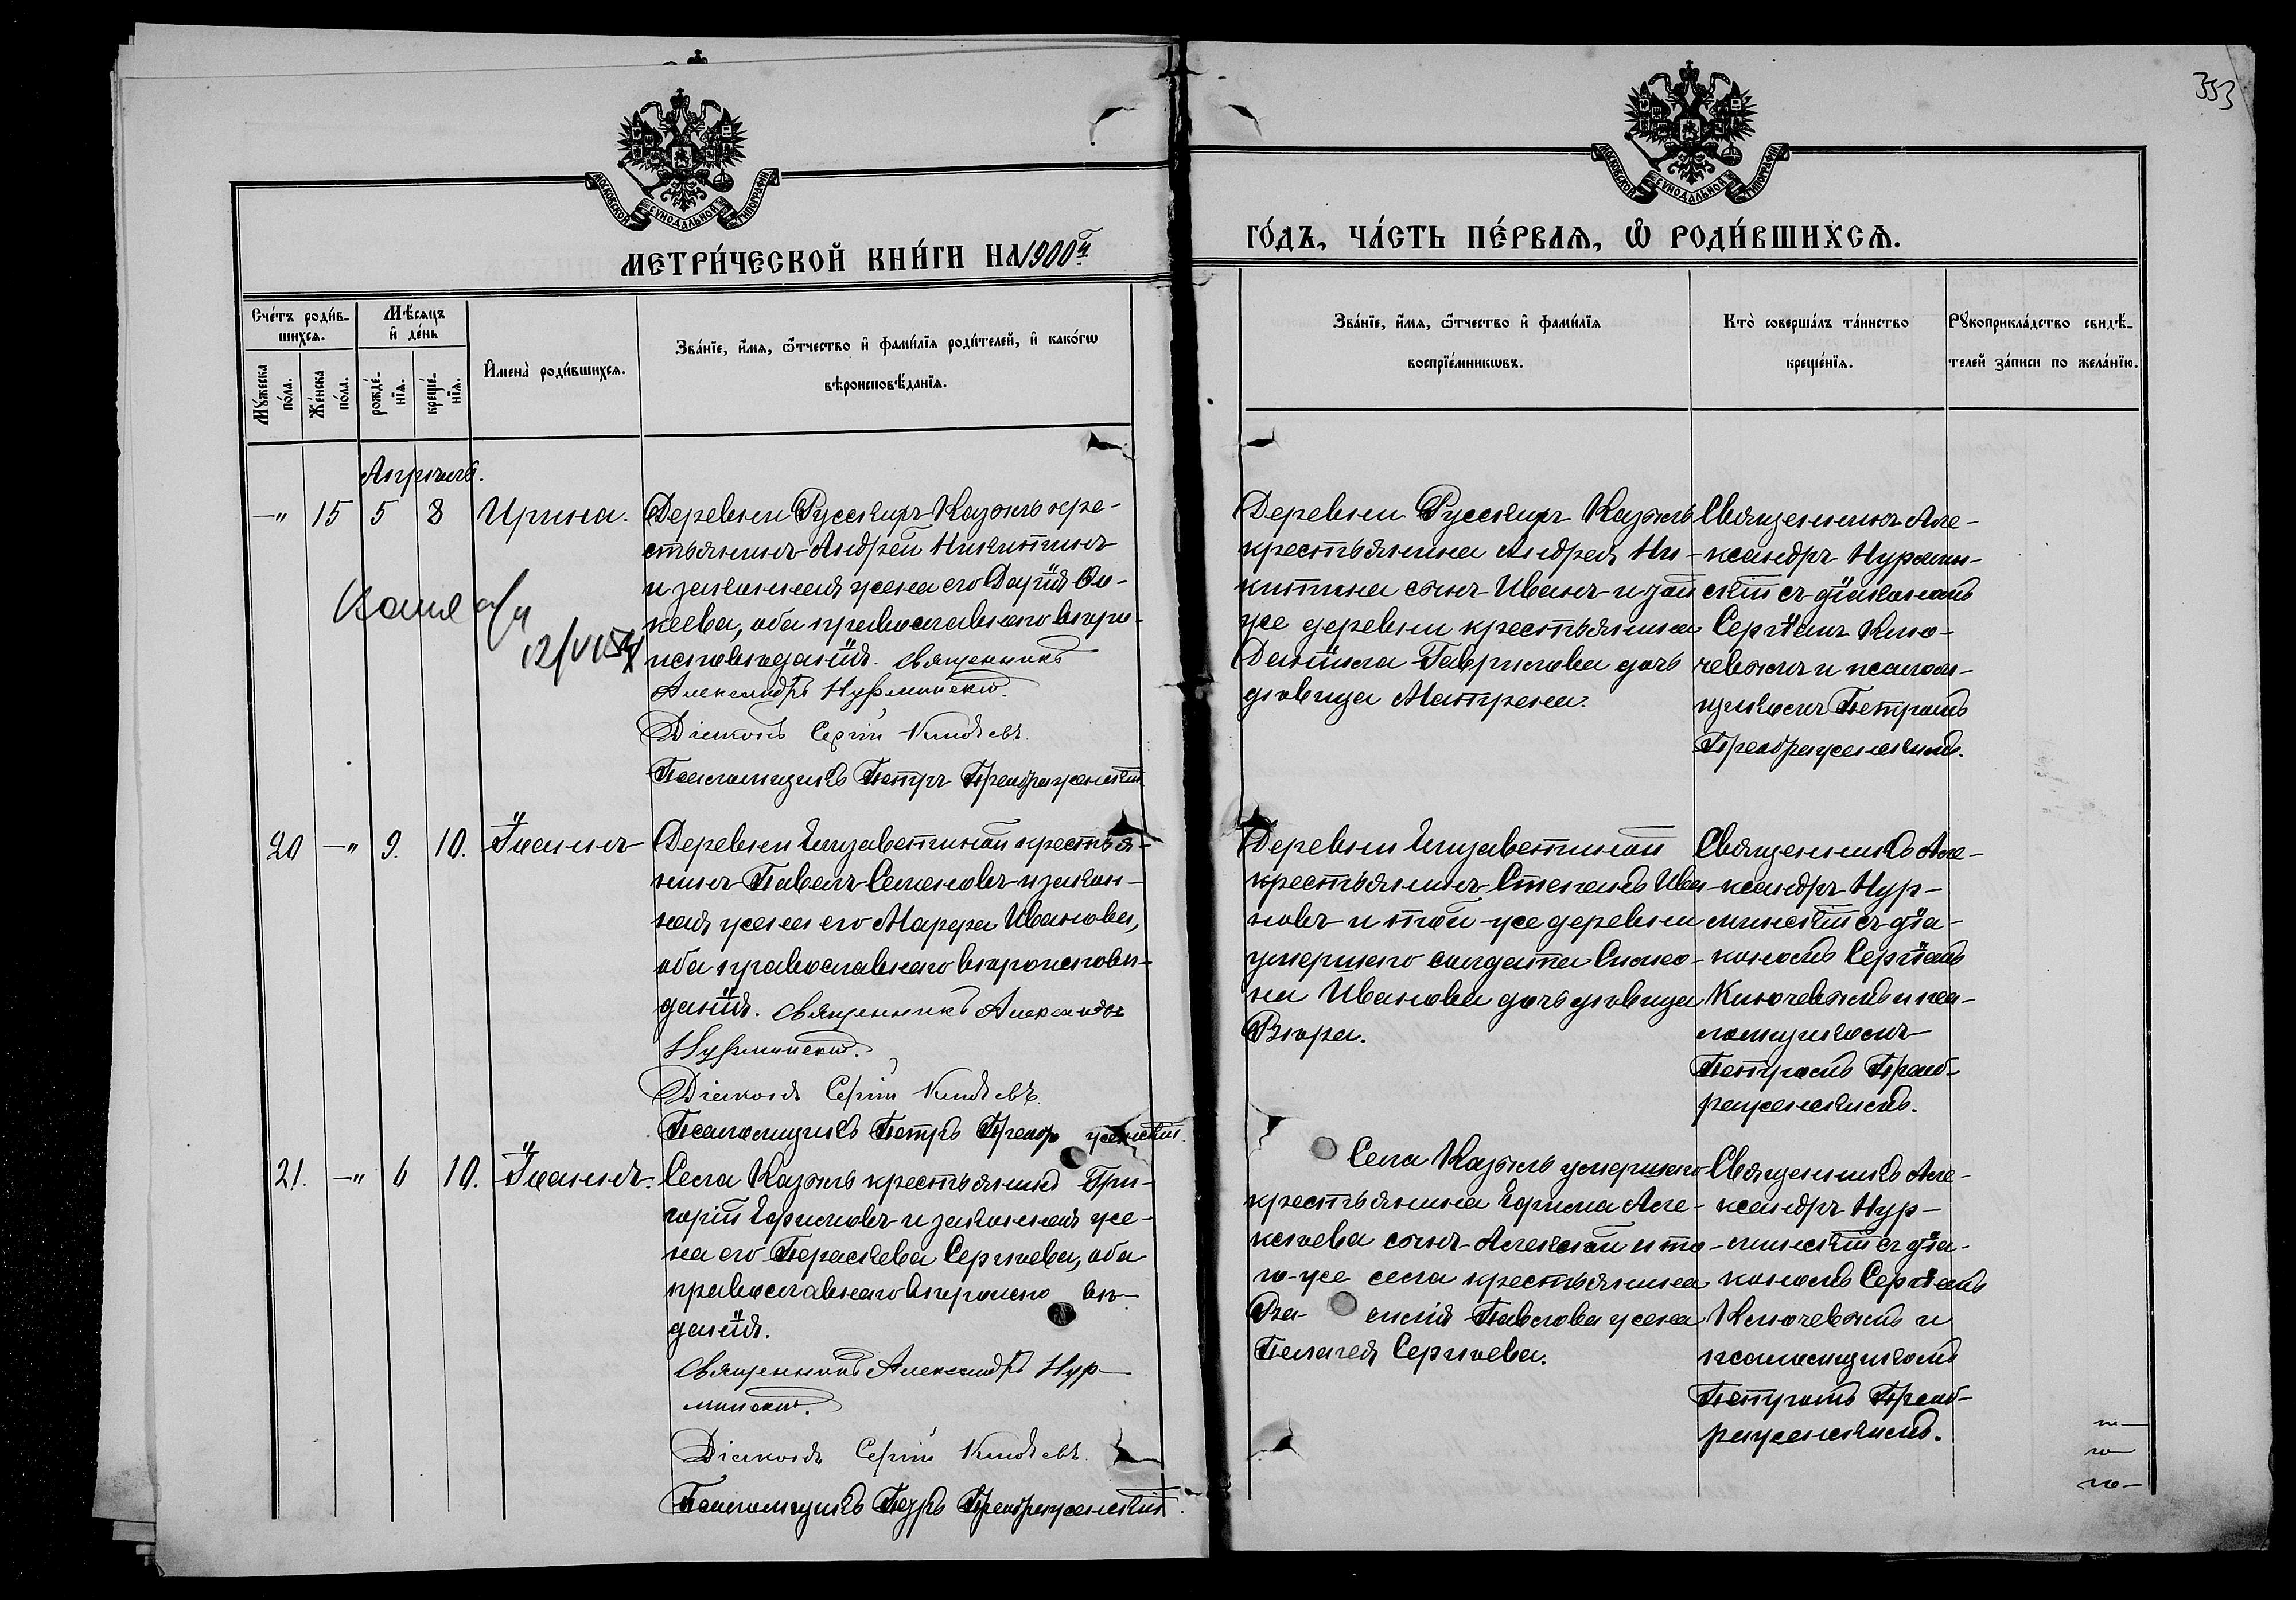 353
МОСКОВСКОЙ СѴНОДАЛЬНОЙ ТИПОГРАФІИ
МОСКОВСКОЙ СѴНОДАЛЬНОЙ ТИПОГРАФІИ
МЕТРИ́ЧЕСКОЙ КНИ́ГИ НА 1900й
ГО́ДЪ, ЧА́СТЬ ПЕ́РВАѦ, Ѽ РОДИ́ВШИХСѦ.
Сче́тъ роди́в-
шихсѧ.
Мꙋ́жеска по́ла.
Же́нска по́ла.
Мѣ́сѧцъ
и҆ де́нь
рожде́-
нїѧ.
креще́-
нїѧ.
И҆мена̀ роди́вшихсѧ.
Зва́нїе, и҆́мѧ, ѻ҆́тчество и҆ фами́лїѧ роди́телей, и҆ како́гѡ
вѣроисповѣ́данїѧ.
Зва́нїе, и҆́мѧ, ѻ҆́тчество и҆ фами́лїѧ
воспрїе́мникѡвъ.
Кто̀ соверша́лъ та́инство
креще́нїѧ.
Рꙋкоприкла́дство свидѣ́-
телей за́писи по жела́нїю.
Апрѣль.
—„ 15 5 8 Ирина.
Деревни Русскихъ Кажль кре-
стьянинъ Андрей Никитинъ
и законная жена его Дарія
кеева, оба православнаго вѣро-
исповѣданія. Священникъ
Александръ Нурминскій.
Діаконъ Сергій Ключевъ.
Псаломщикъ Петръ Преображенскій
12/VI
Деревни Русскихъ Кажль
крестьянина Андрея Ни-
китина сынъ Иванъ и той
же деревни крестьянина
Даніила Гаврилова дочь
дѣвица Матрена.
Священникъ Але-
ксандръ Нурмин-
скій съ діакономъ
Сергіемъ Клю-
чевымъ и псалом-
щикомъ Петромъ
Преображенскимъ.
20 —„ 9. 10. Іоаннъ
Деревни Елизаветиной крестья-
нинъ Павелъ Семеновъ и закон-
ная жена его Марфа Иванова,
оба православнаго вѣроисповѣ-
данія. Священникъ Александръ
Нурминскій.
Діаконъ Сергій Ключевъ.
Псаломщикъ Петръ Преобр женскій.
Деревни Елизаветиной
крестьянинъ Степанъ Ива-
новъ и той же деревни
умершаго солдата Симео-
на Иванова дочь дѣвица
Вѣра.
Священникъ Але-
ксандръ Нур-
минскій съ діа-
кономъ Сергіемъ
Ключевымъ и пса-
ломщикомъ
Петромъ Преоб-
раженскимъ.
21. —„ 6 10. Іоаннъ.
Села Кажль крестьянинъ Гри-
горій Ефимовъ и законная же-
на его Параскева Сергѣева, оба
православнаго вѣроиспо вѣ-
данія.
Священникъ Александръ Нур-
минскій.
Діаконъ Сергій Ключевъ.
Псаломщикъ Петръ Преображенскій.
Села Кажль умершаго
крестьянина Ефима Але-
ксѣева сынъ Алексѣй и то-
го-же села крестьянина
Ва силія Павлова жена
Пелагея Сергѣева.
Священникъ Але-
ксандръ Нур-
минскій съ діа-
кономъ Сергіемъ
Ключевымъ и
псаломщикомъ
Петромъ Преоб-
раженскимъ.